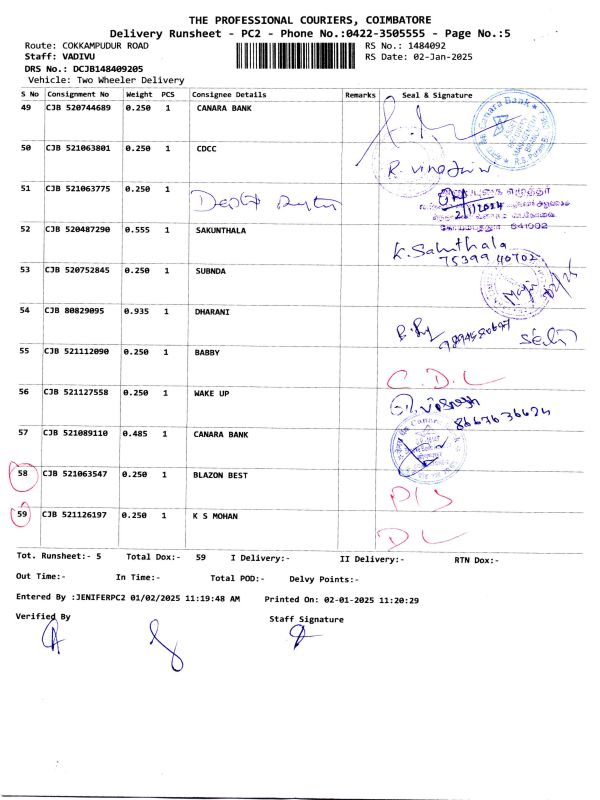 THE PROFESSIONAL COURIERS, COIMBATORE
Delivery Runsheet - PC2 - Phone No.:0422-3505555 - Page No.:5
Route: COKKAMPUDUR ROAD RS No.: 1484092
Staff: VADIVU RS Date: 02-Jan-2025
DRS No.: DCJB148409205
Vehicle: Two Wheeler Delivery
S No Consignment No Weight PCS Consignee Details Remarks Seal & Signature
49 CJB 520744689 0.250 1 CANARA BANK
50 CJB 521063801 0.250 1 CDCC
51 CJB 521063775 0.250 1
52 CJB 520487290 0.555 1 SAKUNTHALA K. Sakunthala
75399 40702
53 CJB 520752845 0.250 1 SUBNDA
54 CJB 80829095 0.935 1 DHARANI
55 CJB 521112090 0.250 1 BABBY C.D.L
56 CJB 521127558 0.250 1 WAKE UP
8667636624
57 CJB 521089110 0.485 1 CANARA BANK
58 CJB 521063547 0.250 1 BLAZON BEST
59 CJB 521126197 0.250 1 K S MOHAN DL
Tot. Runsheet:- 5 Total Dox:- 59 I Delivery:- II Delivery:- RTN Dox:-
Out Time:- In Time:- Total POD:- Delvy Points:-
Entered By :JENIFERPC2 01/02/2025 11:19:48 AM Printed On: 02-01-2025 11:20:29
Verified By Staff Signature